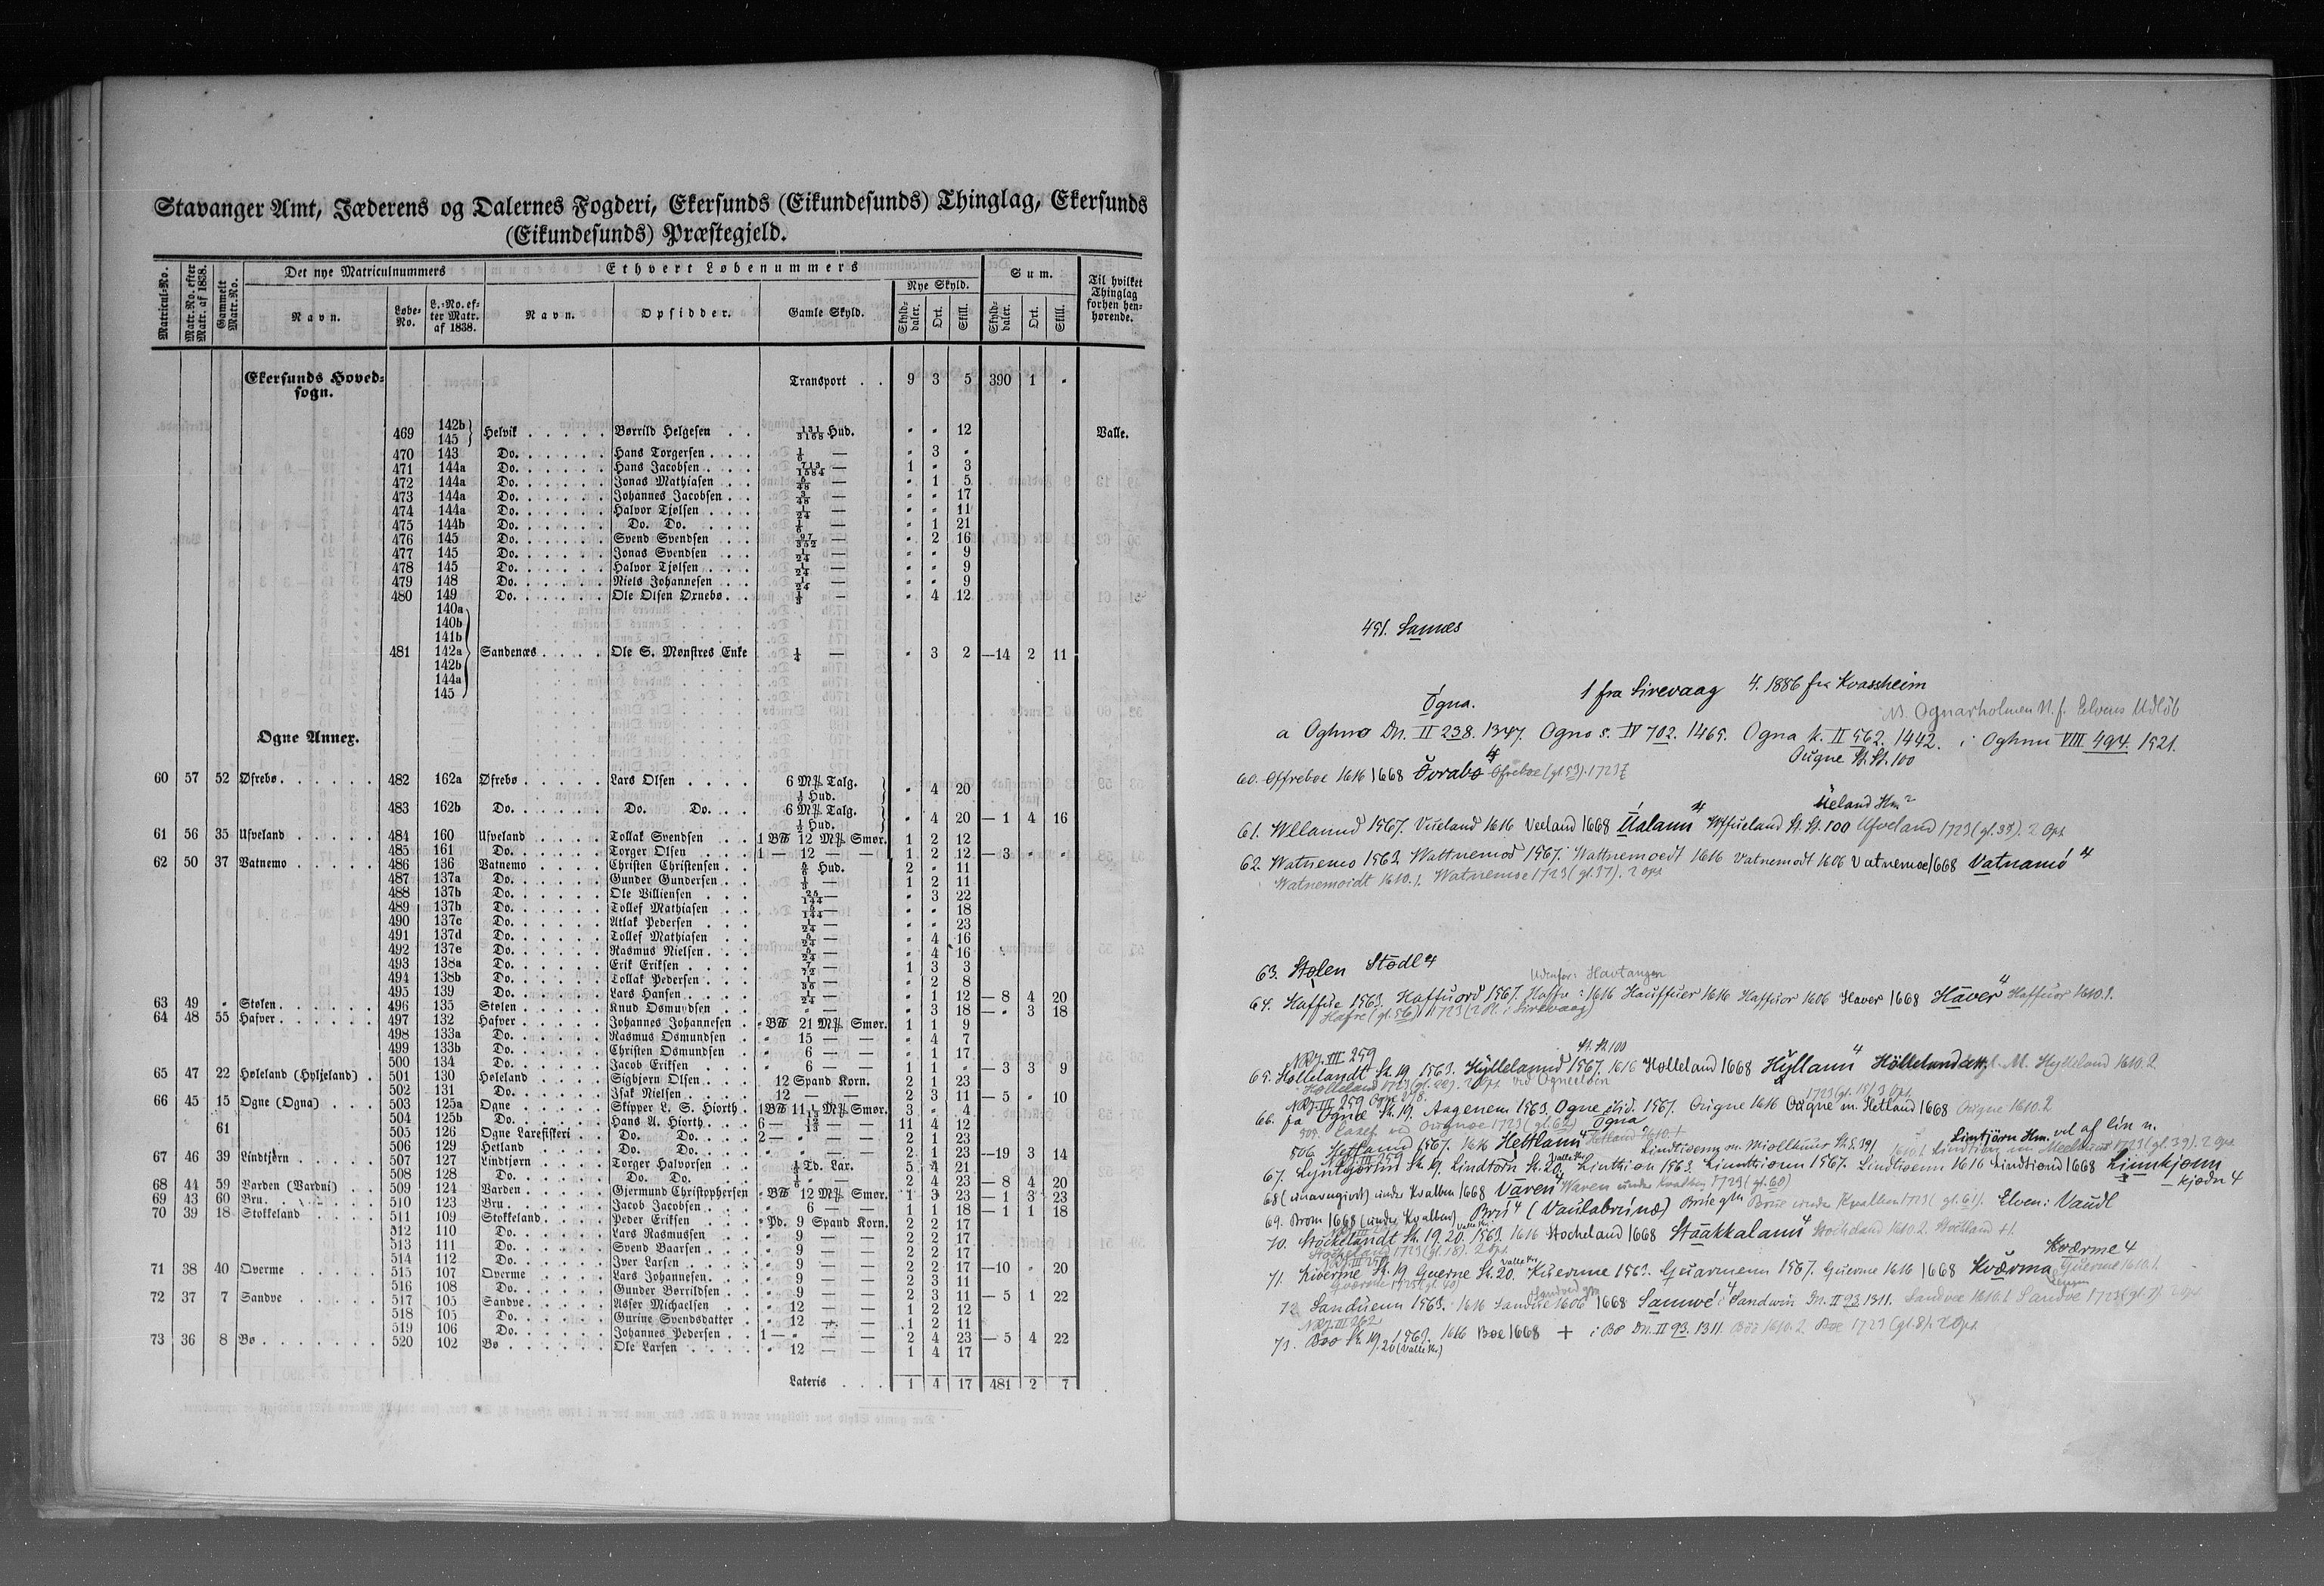 Stavanger Amt, Jæderens og Dalernes Fogderi, Ekersunds (Eikundesunds) Thinglag, Ekersunds
(Eikundesunds) Præstegjeld.
Matricul-No. Matr.-No. efter Matr. af 1838. Gammelt Matr.-No. Det nye Matriculnummers Ethvert Løbenummers Sum. Til hvilket Thinglag forhen henhørende.
Navn. Løbe-No. L.-No. efter Matr. af 1838. Navn. Opsidder. Gamle Skyld. Nye Skyld. Skylddaler. Ort. Skill. Skylddaler. Ort. Skill.
Ekersunds Hoved-
sogn.
Transport . . 9 3 5 390 1 "
469 142b 145 Helvik . . . . . Børrild Helgesen . . 131/3168 Hud. " " 12 Valle.
470 143 Do. . . . . . Hans Torgersen . . . 1/6 — " 3 "
471 144a Do. . . . . . Hans Jacobsen . . . . 713/1584 — 1 " 3
472 144a Do. . . . . . Jonas Mathiasen . . . 5/48 — " 1 5
473 144a Do. . . . . . Johannes Jacobsen . . 3/48 — " " 17
474 144a Do. . . . . . Halvor Tjølsen . . . . 1/24 — " " 11
475 144b Do. . . . . . Do. Do. . . . 1/6 — " 1 21
476 145 Do. . . . . . Svend Svendsen . . . 97/352 — " 2 16
477 145 Do. . . . . . Jonas Svendsen . . . 1/24 — " " 9
478 145 Do. . . . . . Halvor Tjølsen . . . . 1/24 — " " 9
479 148 Do. . . . . . Niels Johannesen . . . 1/24 — " " 9
480 149 Do. . . . . . Ole Olsen Ørnebø . . 1/3 — " 4 12
140a
140b
141b
481 142a Sandenæs . . . . Ole S. Mønstres Enke 1/4 — " 3 2 —14 2 11
142b
144a
145
Ogne Annex.
60 57 52 Øfrebø . . . . . 482 162a Øfrebø . . . . . Lars Olsen . . . . 6 Mkr Talg.
1/2 Hud. " 4 20
483 162b Do. . . . . . Do. Do. . . 6 Mkr Talg.
1/2 Hud. " 4 20 — 1 4 16
61 56 35 Ufveland . . . . . 484 160 Ufveland . . . . Tollak Svendsen . . 1 BT 12 Mkr Smør. 1 2 12
485 161 Do. . . . . . Torger Olsen . . . . 1 — 12 — — 1 2 12 — 3 " "
62 50 37 Vatnemo . . . . . 486 136 Vatnemo . . . . Christen Christensen . . 5/6 Hud. 2 " 11
487 137a Do. . . . . . Gunder Gundersen . . 1/3 — 1 2 11
488 137b Do. . . . . . Ole Villiensen . . . 25/144 — " 3 22
489 137b Do. . . . . . Tollef Mathiasen . . . 5/144 — " " 18
490 137c Do. . . . . . Atlak Pedersen . . . 1/24 — " " 23
491 137d Do. . . . . . Tollef Mathiasen . . 5/24 — " 4 16
492 137e Do. . . . . . Rasmus Nielsen . . . 5/24 — " 4 16
493 138a Do. . . . . . Erik Eriksen . . . . 7/72 — 1 3 3
494 138b Do. . . . . . Tollak Pedersen . . . 1/36 — " 2 8
495 139 Do. . . . . . Lars Hansen . . . . 1/24 — " 1 12 — 8 4 20
63 49 " Stølen . . . . . . 496 135 Stølen . . . . . Knud Osmundsen . . " — " 3 18 — " 3 18
64 48 55 Hafver . . . . . . 497 132 Hafver . . . . . Johannes Johannesen . " BT 21 Mkr Smør. 1 1 9
498 133a Do. . . . . . Rasmus Osmundsen . " 15 — — " 4 7
499 133b Do. . . . . . Christen Osmundsen . " 6 — — " 1 17
500 134 Do. . . . . . Jacob Eriksen . . . " 6 — — 1 1 " — 3 3 9
65 47 22 Høleland (Hyljeland) . 501 130 Høleland . . . . Sigbjørn Olsen . . . 12 Spand Korn. 2 1 23
502 131 Do. . . . . . Isak Nielsen . . . . 12 — — 2 3 11 — 5 " 10
66 45 15 Ogne (Ogna) . . . 503 125a Ogne . . . . . Skipper L. S. Hiorth . 1 BT 11 1/13 Mkr Smør. 3 " 4
61 504 125b Do. . . . . . Hans A. Hiorth . . . 6 — 12/13 — — 11 4 12
505 126 Ogne Laxefiskeri . . Do. Do. . . . 2 — " — — 2 1 23
506 129 Hetland . . . . Do. Do. . . . " — — 2 1 23 —19 3 14
67 46 39 Lindtjørn . . . . . 507 127 Lindtjørn . . . . Torger Halvorsen . . 1/2 Td. Lax. 5 4 21
508 128 Do. . . . . . Do. Do. . . . 1/6 " — 2 4 23 — 8 4 20
68 44 59 Varden (Vardni) . . 509 124 Varden . . . . . Gjermund Christophersen " BT 12 Mkr Smør. 1 3 23 — 1 3 23
69 43 60 Bru . . . . . . . 510 123 Bru . . . . . . Jacob Jacobsen . . . " 6 — — 1 1 18 — 1 1 18
70 39 18 Stokkeland . . . . 511 109 Stokkeland . . . . Peder Eriksen . . . " Pd. 9 Spand Korn. 2 2 17
512 110 Do. . . . . . Lars Rasmussen . . " 9 — — 2 2 17
513 111 Do. . . . . . Svend Baarsen . . . " 9 — — 2 2 17
514 112 Do. . . . . . Iver Larsen . . . . " 9 — — 2 2 17 —10 " 20
71 38 40 Qverme . . . . . 515 107 Qverme . . . . . Lars Johannesen . . . " 9 — — 2 3 11
516 108 Do. . . . . . Gunder Børrildsen . . " 9 — — 2 3 11 — 5 1 22
72 37 7 Sandve . . . . . 517 105 Sandve . . . . . Asser Michaelsen . . " 12 — — 1 2 12
518 105 Do. . . . . . Gurine Svendsdatter . . " 12 — — 1 2 11
519 106 Do. . . . . . Johannes Pedersen . . 1 — " — — 2 4 23 — 5 4 22
73 36 8 Bø . . . . . . . 520 102 Bø . . . . . . Ole Larsen . . . . " 12 — — 1 4 17
Lateris . . . 1 4 17 481 2 7
491. Sannes
Ógna. 1 fra Sirevaag 4. 1886 fra Kvassheim
NB. Ognarholmen N. f. Elvens Udløb
a Oghno Dn. II 238. 1347. Ogno s. IV 702. 1465. Ogna k. II 562. 1442. i Oghnu VIII 494. 1521.
Ougne St. St. 100
60. Offreboe 1616 1668 Óvrabø 4 Ofreboe (gl. 53). 1723
Ueland Hm 2
61. Wllannd 1567. Vueland 1616 Veeland 1668 Úalann 4 Wffueland St. St. 100 Ufveland 1723 (gl. 35). 2 Ops.
62. Watnemo 1563. Wattnemod 1567. Wattnemoedt 1616 Vatnemodt 1606 Vatnemoe 1668 Vatnamó 4
Watnemoidt 1610.1. Watnemoe 1723 (gl. 37). 2 ops.
63. Stølen Stødl 4
Udenfor: Havtangen
64. Haffue 1563. Haffuord 1567. Haffu : 1616 Hauffuer 1616 Haffuor 1606 Haver 1668 Häver 4 Haffuor 1610.1.
Hafre (gl. 56) 1723 (2 Pl. i Sirevaag)
NRJ. III 259 St. St. 100
65. Høllelandt Sk. 19. 1563. Hyllelannd 1567. 1616 Holleland 1668 Hyllann 4 Hölleland M. Hylleland 1610.2
Holleland 1723 (gl. 22). 2 Ops. ved Ogneelven
66. Ogne Sk. 19. Aagenem 1563. Ogne 1567. Ougne 1616 Ougne m. Hetland 1668 Ougne 1610.2
505. Laxef. ved Ougnøe 1723 (gl. 62) Ogna
506 Hettland 1567. 1616 Hettlann 4 Lindtjørn Hm. vel af lin n.
67. Lyntgørnn Sk. 19. Lindtörn Sk. 20. Linthion 1563. Linnthionn 1567. Lindtioenn 1616 Lindtiond 1668 Linnkjønn
kjødn 4
68 (unavngivet) under Kvalben 1668 Våren 4 Waren under Kvalben 1723 (gl. 60)
69. Brom 1668 (under Kvalben) Brú 4 (Vaulabruna) Brue under Kvalben 1723 (gl. 61). Elven: Vaudl
70. Stockelandt Sk. 19. 20. 1563. 1616 Stocheland 1668 Ståkkalann 4 Stocheland 1610.2.
Stocheland 1723 (gl. 18). 2 ops.
Kværme 4
71. Kwerme Sk. 19 Querne Sk. 20. Kuernne 1563. Quarmenn 1567. Querme 1616 1668 Kværma Querme 1610.1.
72 Sanduenn 1563. 1616 Sandue 1606 1668 Sannvé 4 i Sandwin Dn. II 93 1311. Sandvee 1610.1 Sandve 1723 (gl. 7). 2 ops
NRJ. III 262
73. Boo Sk. 19. 20 (Valle Kr.) 1563. 1616 Boe 1668 + i Bø Dn. II 93. 1311. Böe 1610.2. Boe 1723 (gl. 8). 2 Ops.